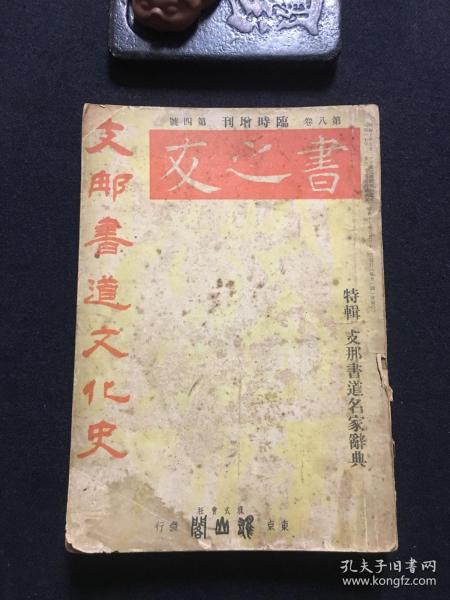 第八卷 臨時增刊 第四號
書之友
特輯 支那書道名家辭典
支那書道文化史
東京 株式會社 雄山閣 發行
孔夫子旧书网
www.kongfz.com